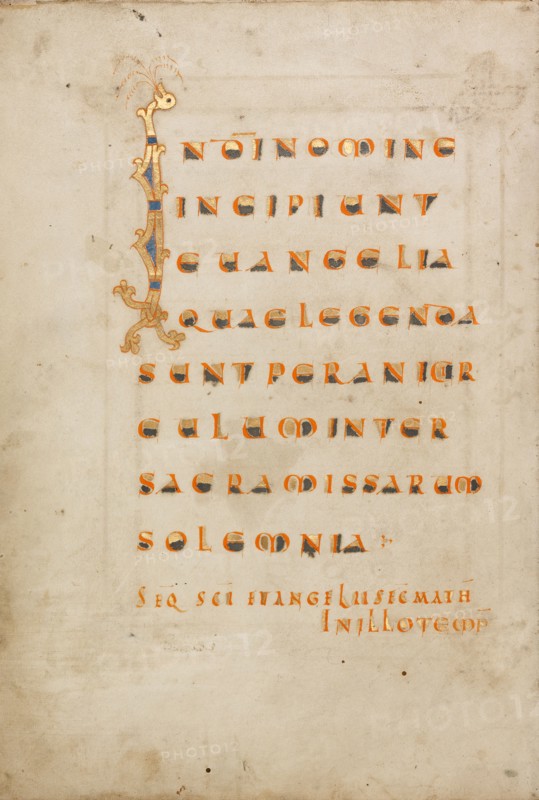 IN DNI NOMINE
INCIPIUNT
EUANGELIA
QUAE LEGENDA
SUNT PER ANNI CIR
CULUM INTER
SACRA MISSARUM
SOLEMNIA
SEQ SCI EUANGELII SEC MATH
IN ILLO TEMP